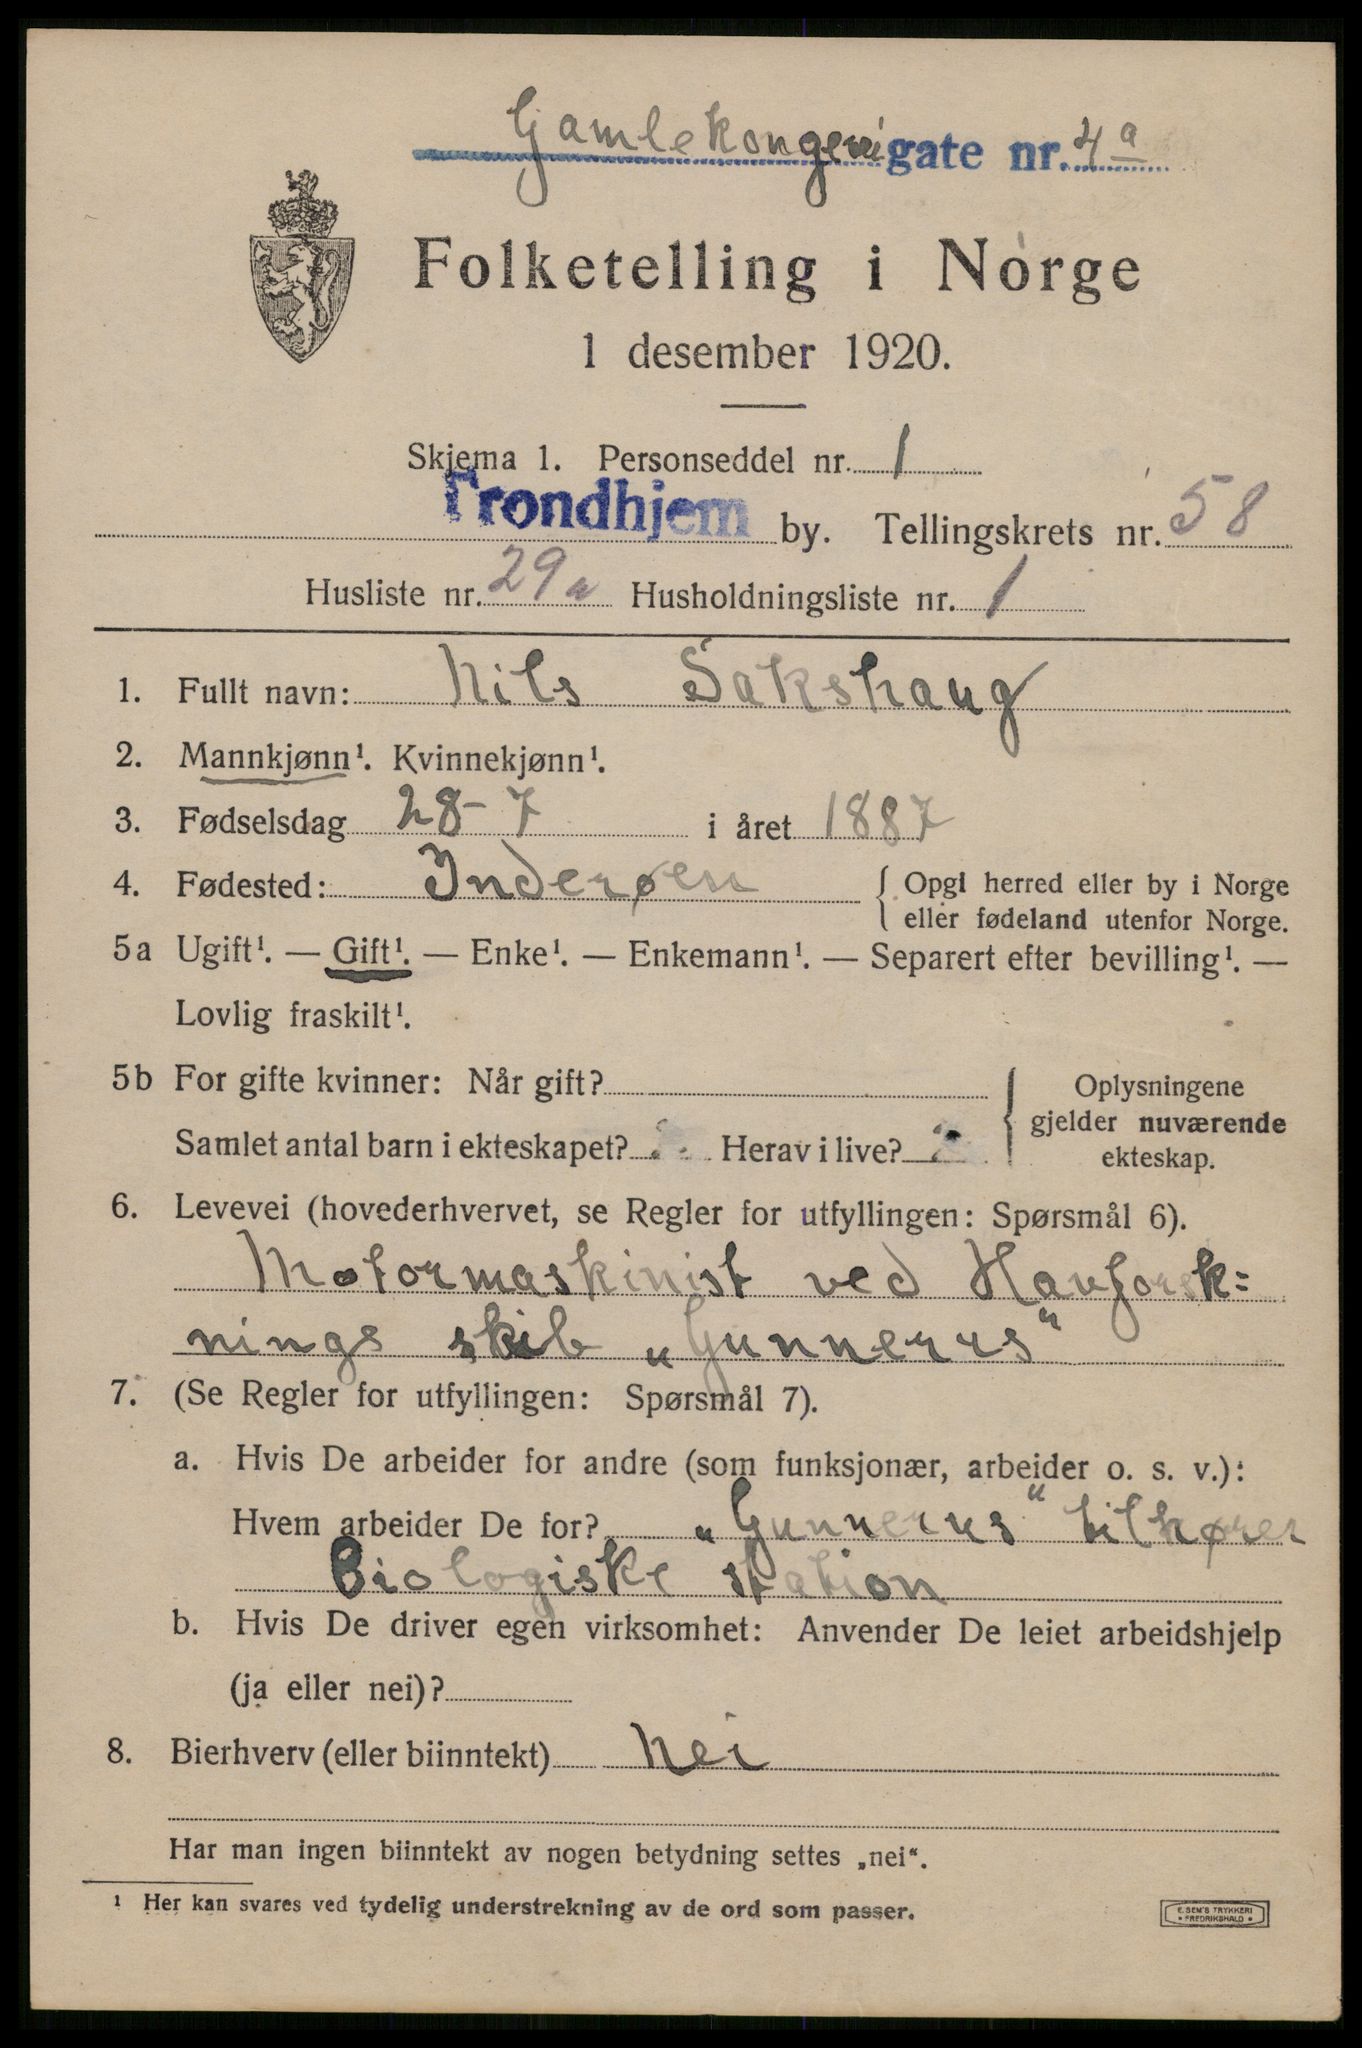 Gamlekongevei gate nr. 4a
Folketelling i Norge
1 desember 1920.
Skjema 1. Personseddel nr. 1
Trondhjem by. Tellingskrets nr. 58
Husliste nr. 29a Husholdningsliste nr. 1
1. Fullt navn: Nils Sakshaug
2. Mannkjønn¹. Kvinnekjønn¹.
3. Fødselsdag 28-7 i året 1887
4. Fødested: Inderøen { Opgi herred eller by i Norge
eller fødeland utenfor Norge.
5a Ugift¹. — Gift¹. — Enke¹. — Enkemann¹. — Separert efter bevilling¹. —
Lovlig fraskilt¹.
5b For gifte kvinner: Når gift?
Samlet antal barn i ekteskapet? Herav i live?
{ Oplysningene
gjelder nuværende
ekteskap.
6. Levevei (hovederhvervet, se Regler for utfyllingen: Spørsmål 6).
Motormaskinist ved Havforsk=
nings skib „Gunnerus"
7. (Se Regler for utfyllingen: Spørsmål 7).
a. Hvis De arbeider for andre (som funksjonær, arbeider o. s. v.):
Hvem arbeider De for? „Gunnerus" tilhører
Biologiske station
b. Hvis De driver egen virksomhet: Anvender De leiet arbeidshjelp
(ja eller nei)?
8. Bierhverv (eller biinntekt) Nei
Har man ingen biinntekt av nogen betydning settes „nei".
¹ Her kan svares ved tydelig understrekning av de ord som passer.
E. SEM'S TRYKKERI
• FREDRIKSHALD •